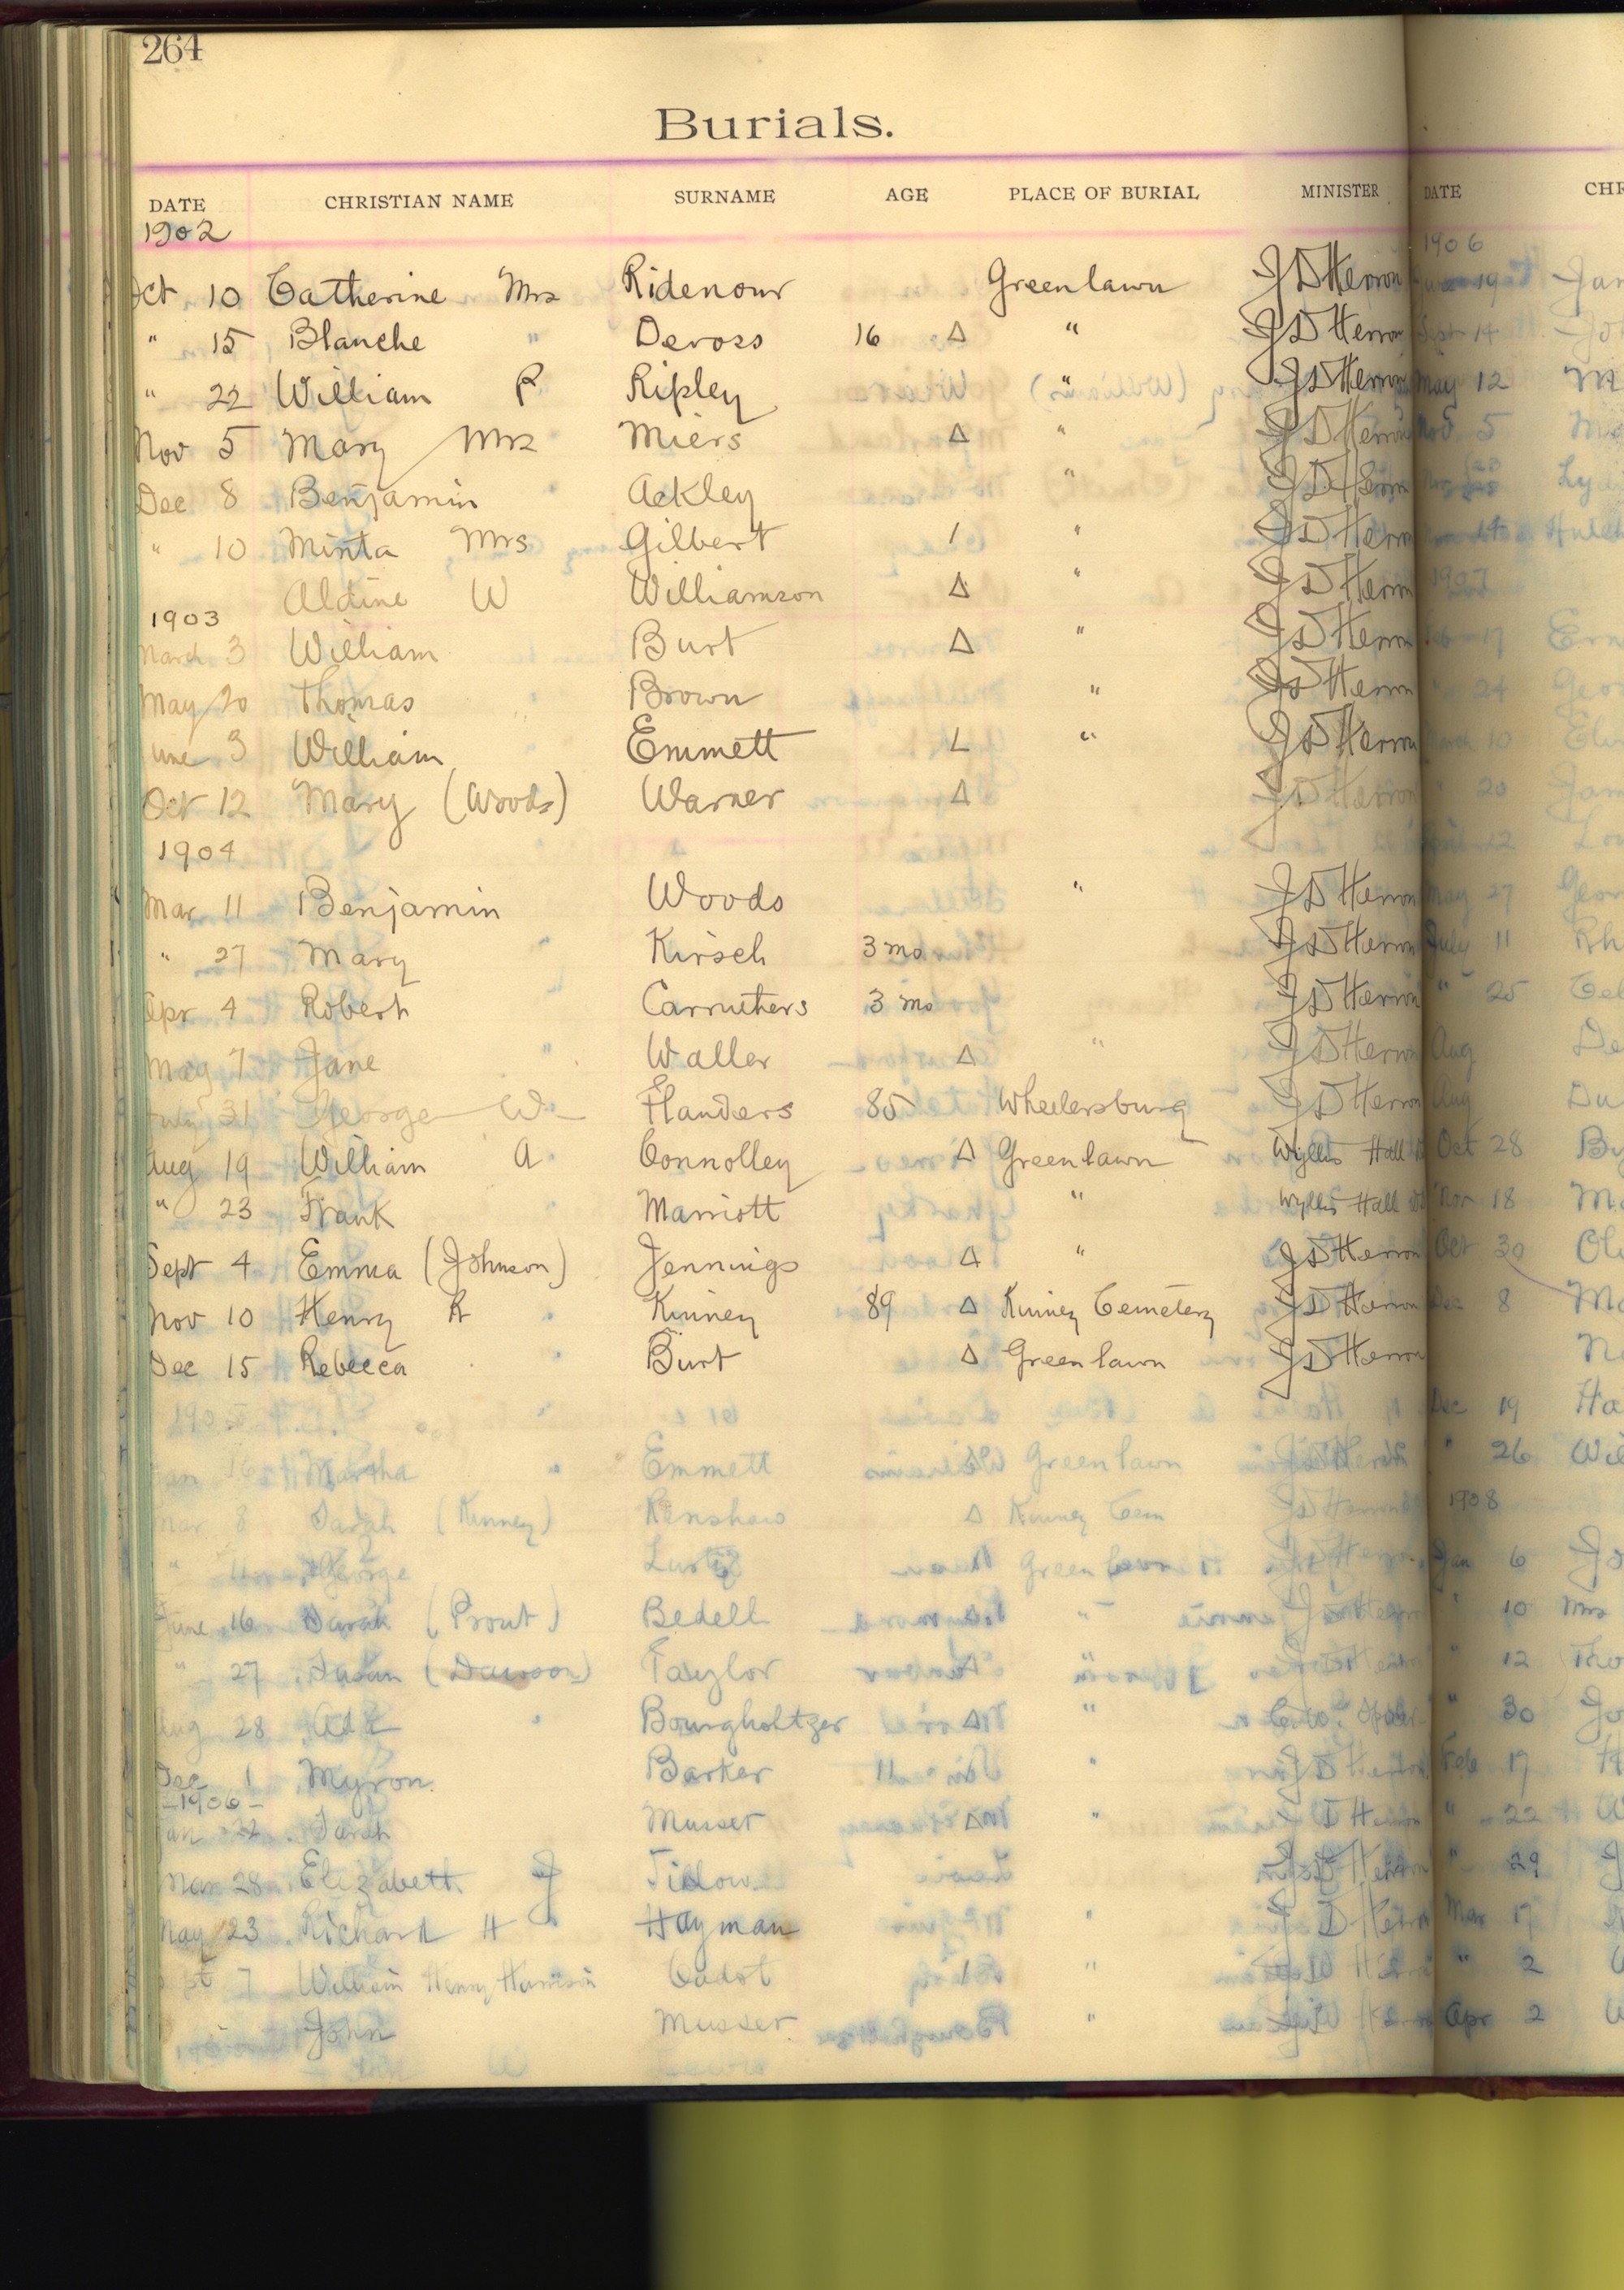 264
Burials.
DATE CHRISTIAN NAME SURNAME AGE PLACE OF BURIAL MINISTER DATE
1902
1906
Oct 10 Catherine Mrs Ridenour Greenlawn J D Herron
" 15 Blanche " Devoss 16 Δ " J D Herron Sept 14
" 22 William P Ripley " J D Herron May 12
Nov 5 Mary Mrs Miers Δ " J D Herron Nov 5
Dec 8 Benjamin Ackley " J D Herron
" 10 Minta Mrs Gilbert / " J D Herron
Aldine W Williamson Δ " J D Herron 1907
1903
March 3 William Burt Δ " J D Herron
May 20 Thomas Brown " J D Herron " 24
June 3 William Emmett L " J D Herron March 10
Oct 12 Mary (Woods) Warner Δ J D Herron " 20
1904
Mar 11 Benjamin Woods " J D Herron May 27
" 27 Mary " Kirsch 3 mo J D Herron July 11
Apr 4 Robert Carruthers 3 mo J D Herron " 25
May 7 Jane " Waller Δ " J D Herron Aug
July 31 George W Flanders 85 Wheelersburg J D Herron Aug
Aug 19 William A Connolley Δ Greenlawn Wyllis Hall Oct 28
" 23 Frank Marriott " Wyllis Hall Nov 18
Sept 4 Emma (Johnson) Jennings Δ " J D Herron Oct 30
Nov 10 Henry R Kinney 89 Δ Kinney Cemetery J D Herron Dec 8
Dec 15 Rebecca Burt Δ Greenlawn J D Herron
1905 Dec 19
Jan 16 Martha Emmett Greenlawn " 26
1908
Mar 8 Sarah (Kinney) Renshaw Δ Kinney Cem J D Herron
" George Greenlawn Jan 6
June 16 Sarah (Prout) Bedell " " 10 Mrs
" 27 Susan (Dawson) Taylor " " 12
Aug 28 Ada Bourgholtzer Δ " " 30
Dec 1 Myron Barker 11 " Feb 17
-1906-
Jan 22 Sarah Musser Δ " J D Herron " 22
Mar 28 Elizabeth J " 29
May 23 Richard H Hayman " J D Herron Mar 17
Sept 7 William Henry Harrison Cadot " " 2
John Musser " Apr 2